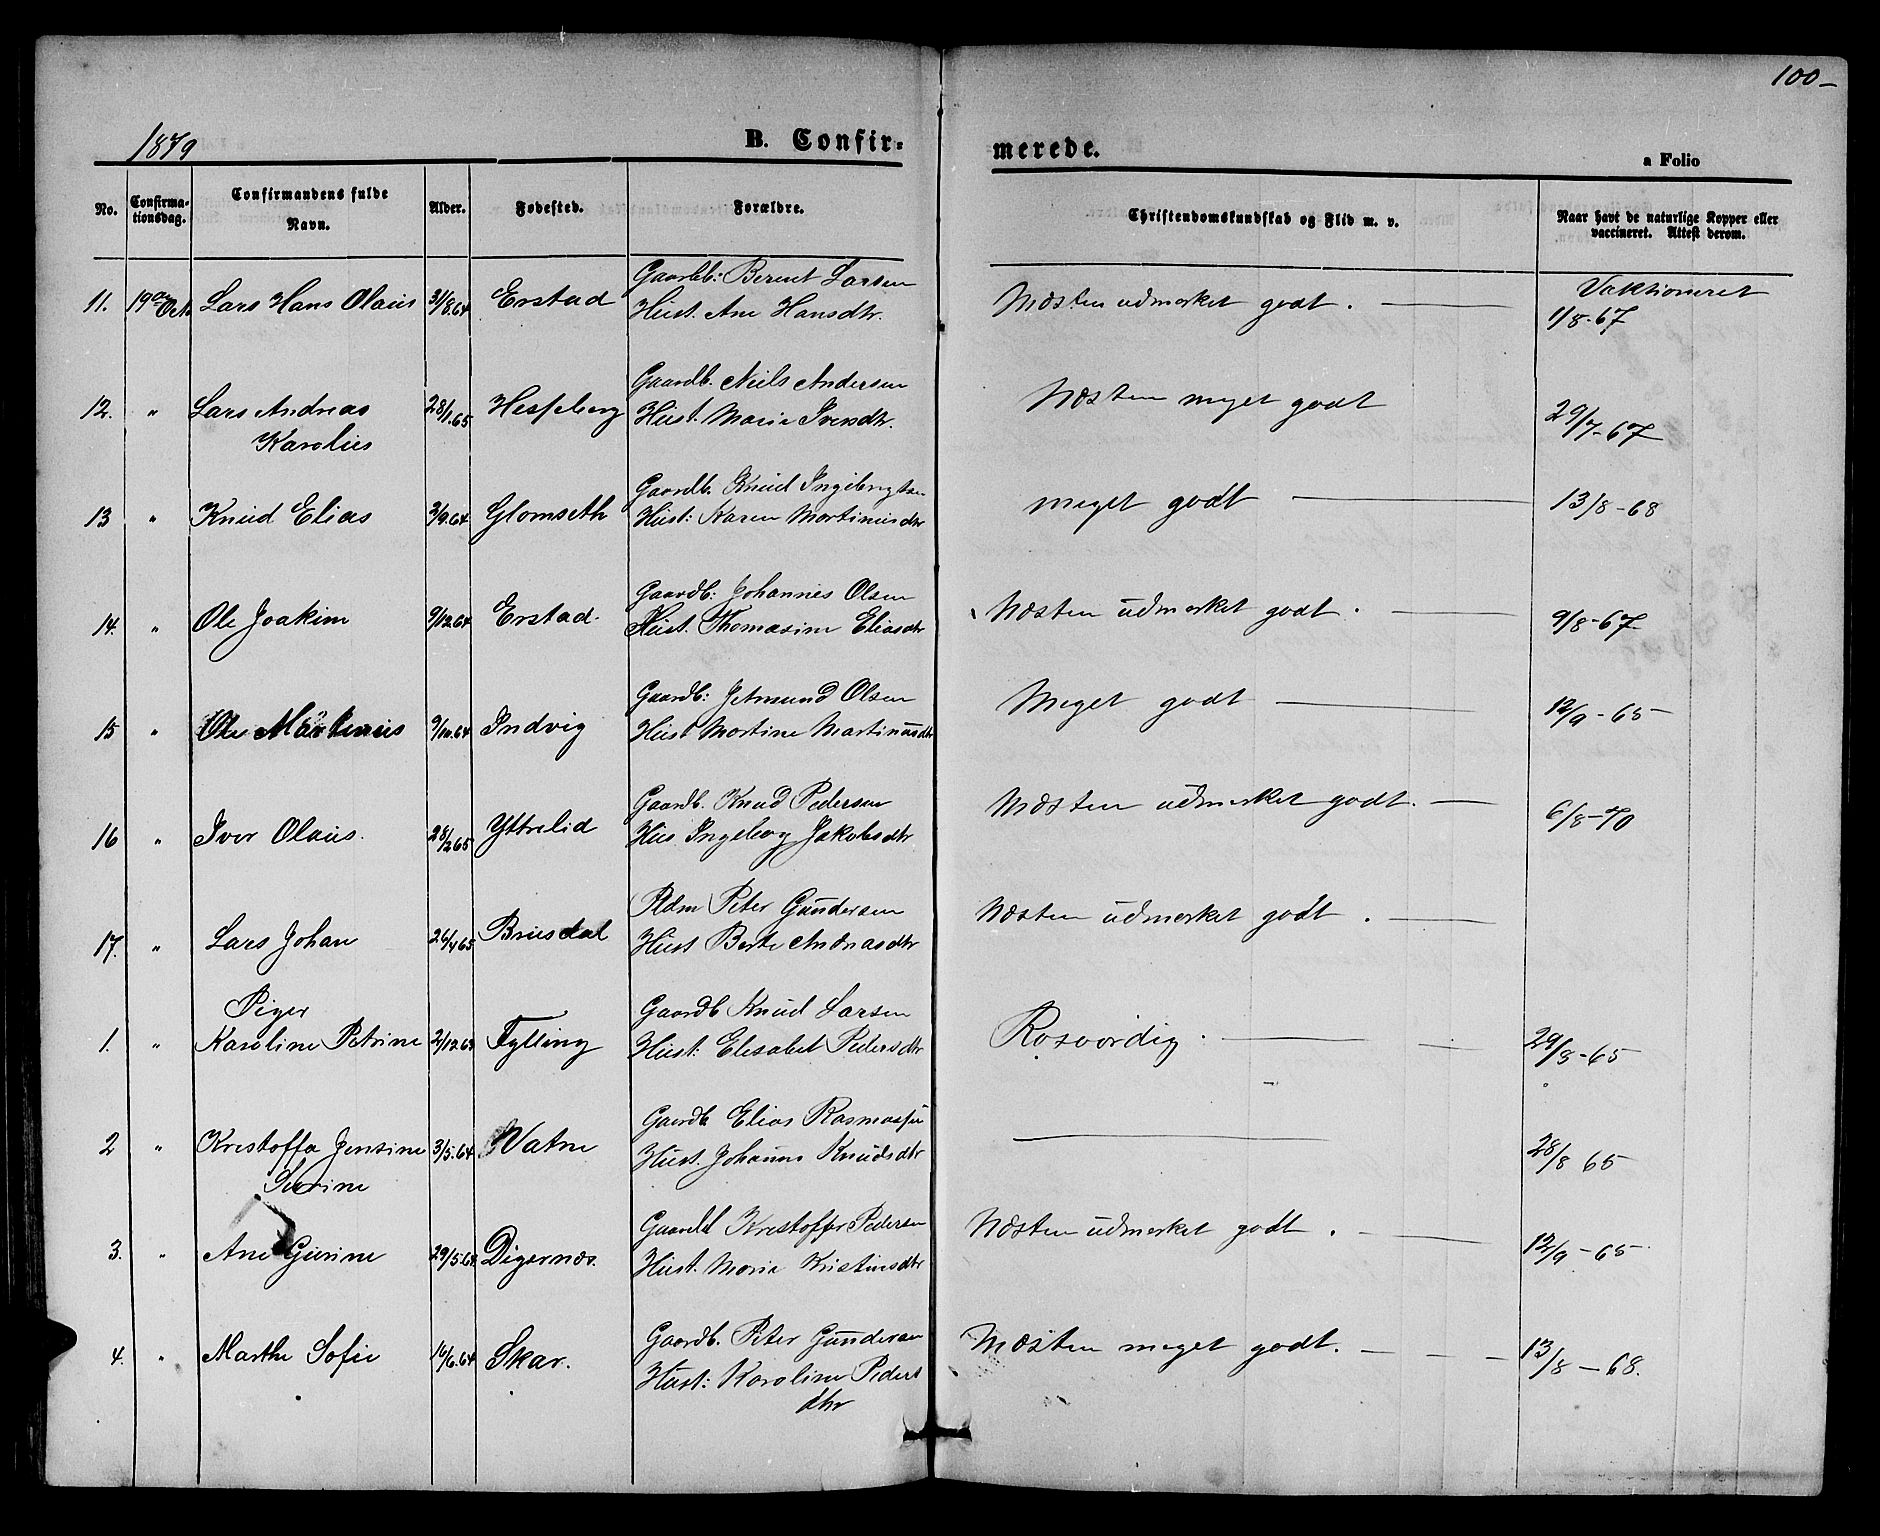 100-
1879
B. Confir-
merede.
a Folio
No.
Confirma-
tionsdag.
Confirmandens fulde
Navn.
Alder.
Fødested.
Forældre.
Christendomskundskab og Flid m. v.
Naar havt de naturlige Kopper eller
vaccineret. Attest derom.
11. 19de Oct. Lars Hans Olaus 31/8.64 Erstad Gaardb: Bernt Larsen
Hust. Ane Hansdtr. Næsten udmerket godt. Vaktioneret
1/8-67
12. " Lars Andreas 28/1.65 Hesseberg Gaardb. Niels Andersen
Karolus Hust. Marie Iversdtr. Næsten meget godt 29/7-67
13 " Knud Elias 3/9.64 Glomseth Gaardb. Knud Ingebrigtsen
Hust: Karen Martinusdtr meget godt 13/8-68
14. " Ole Joakim 9/12.64 Erstad. Gaardb: Johannes Olsen
Hust. Thomasine Eliasdtr Næsten udmerket godt. 9/8-67
15 " Ole Martinus 9/10.64 Indvig Gaardb: Jetmund Olsen
Hust Martine Martinusdtr Meget godt 12/9-65
16 " Iver Olaus. 28/2.65 Yttrelid Gaardb. Knud Pedersen
Hus. Ingeborg Jakobsdtr Næsten udmerket godt. 6/8-70
17. " Lars Johan 26/4.65 Brusdal Pldm Peter Gundersen
Hust Berte Andreasdtr Næsten udmerket godt.
Piger
1. " Karoline Petrine 2/12.64 Fylling Gaardb Knud Larsen
Hust: Elesabet Pedersdtr Rosværdig. 29/8-65
2 " Krestoffa Jensine 3/5.64 Vatne Gaardb Elias Rasmussen
Severine Hust. Johanne Knudsdtr 28/8 65
3. " Ane Gurine 29/5.64 Digernæs. Gaardb Krestoffer Pedersen
Hust. Marie Kristinsdtr Næsten udmerket godt. 12/9-65
4. " Marthe Sofie 16/6.64 Skar. Gaardb. Peter Gundersen
Hust: Karoline Peders
dtr Næsten meget godt. 13/8-68.